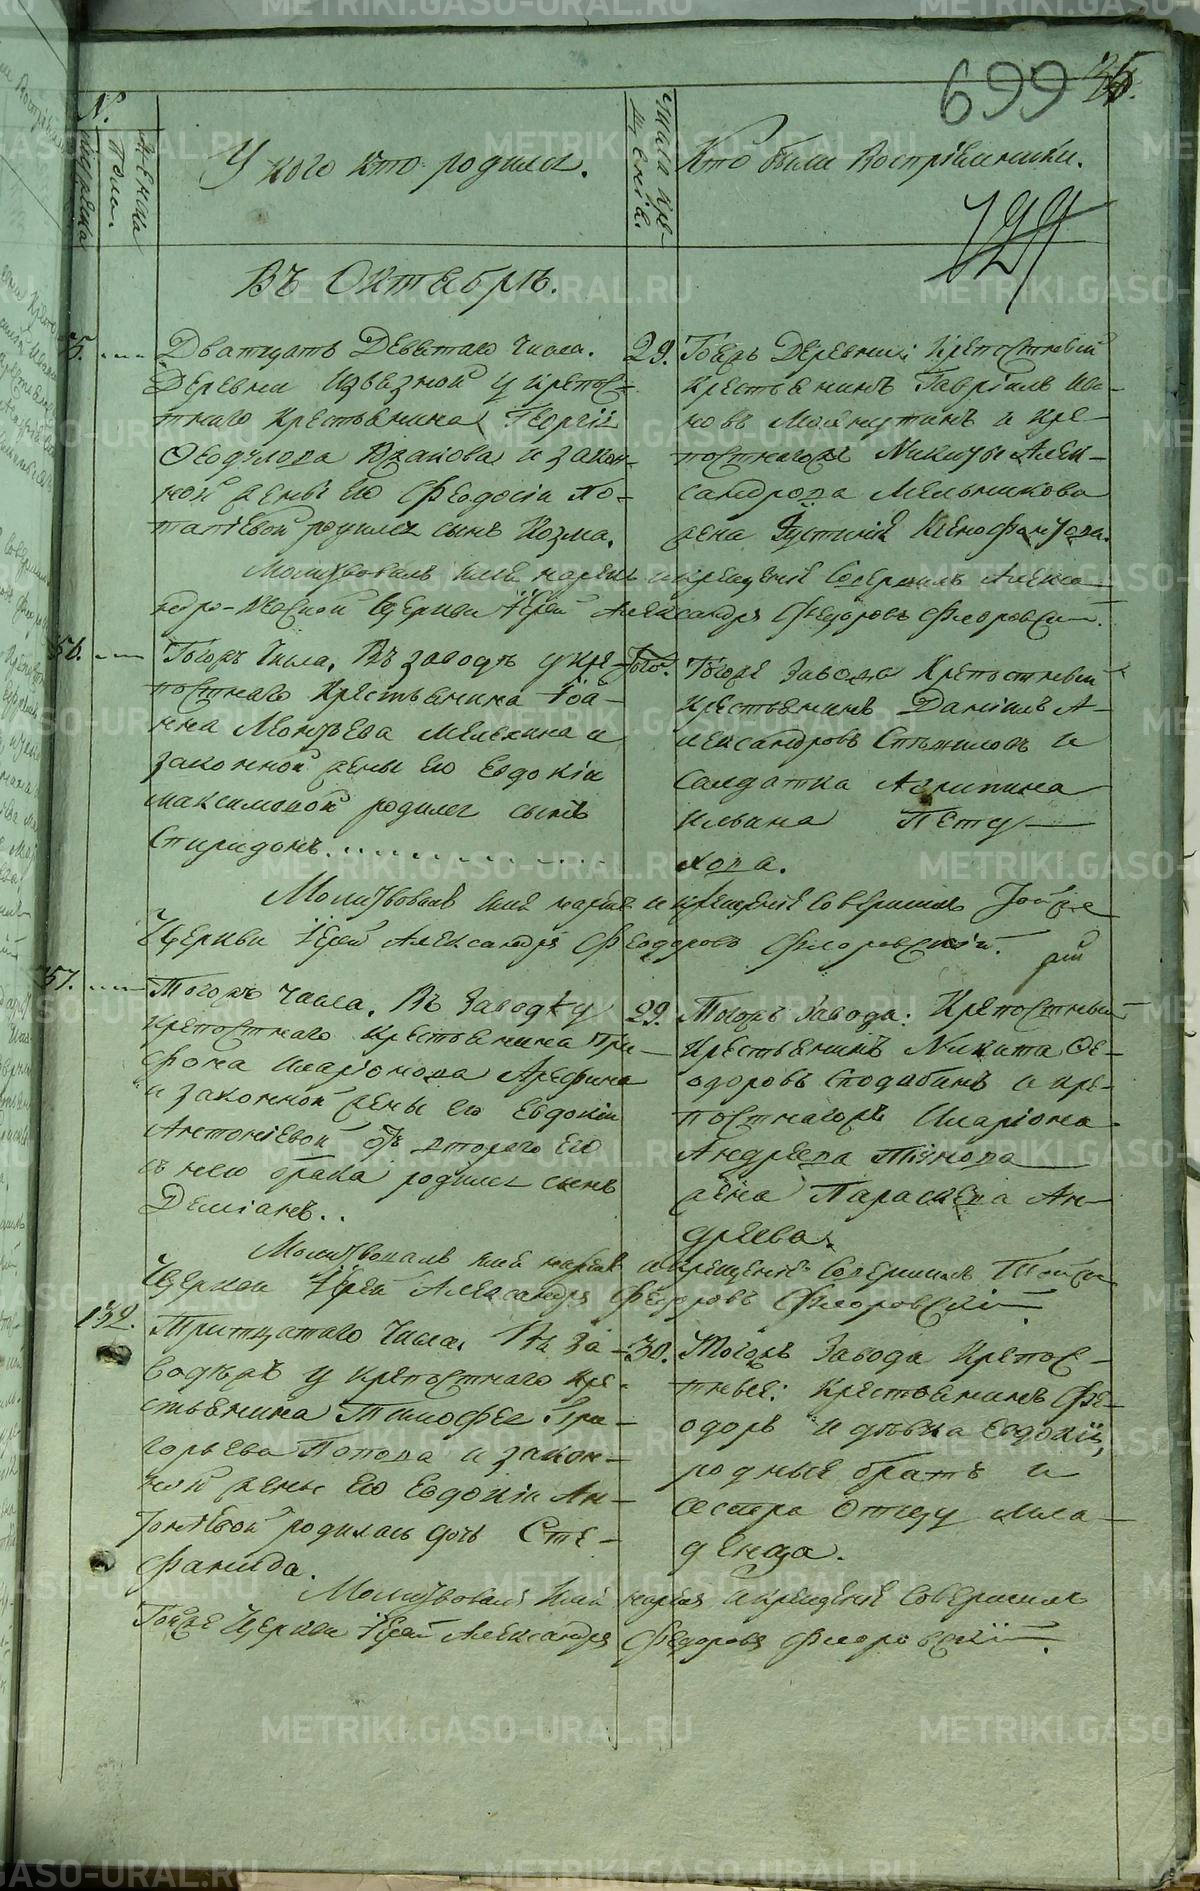 699
35.
№.
Мужеска
Женска
пола.
У кого кто родился.
Числа кре-
щенія.
Кто были Воспріемники.
199
Въ Октябрѣ.
5.
Дватцать Девятаго Числа.
Деревни Извезной у крепос-
тнаго Крестьянина Георгія
Ѳеодулова Казакова и закон-
ной жены его Феодосіи По-
тапіевой родился сынъ Козма.
29.
Тоежъ Деревнии Крепостныи
крестьянинъ Гавріилъ Ива-
новъ и кре-
постнагожъ Никиты Алек-
сандрова Мельникова
жена Іустинія Ксенофонтова.
Молитвовалъ имя нарекъ и крещеніе Совершилъ Алекса
ндро-Невской Церкви Іерей Александръ Феодоровъ Флоровскій.
56.
Тогожъ Числа. Въ заводѣ у кре-
постнаго Крестьянина Іоа-
нна Мелехина и
законной жены его Евдокіи
Максимовой родился сынъ
Спиридонъ.
Тогожъ Завода Крепостныи
крестьянинъ Даніилъ А-
лександровъ и
Салдатка Агрипина
Ильина Пету-
хова.
Молитвовалъ имя нарекъ и крещеніе Совершилъ Тойже
Церкви Іерей Александръ Феодоровъ Флоровскій.
57.
Тогожъ Числа. Въ Заводѣ у
Крепостнаго Крестьянина Три-
фона Иларіонова Арефина
и законной жены его Евдокіи
Антоніевой отъ втораго его
съ нею брака родился сынъ
Деміанъ..
29.
Тогожъ Завода: Крепостныи
Крестьянинъ Никита Ѳе-
одоровъ Сподабинъ и кре-
постнагожъ Иларіона
Андреева
жена Параскева Ан-
дреева.
Молитвовалъ имя нарекъ и крещеніе Совершилъ Тойже
Церкви Іерей Александръ Феодоровъ Флоровскій.
132.
Тритцатаго Числа. Въ за-
водѣжъ у крепостнаго кре-
стьянина Тимофея Гри-
горьева Попова и закон-
ной жены его Евдокіи Ан-
тоніевой родилась дочь Сте-
фанида.
30.
Тогожъ Завода Крепос-
тные: Крестьянинъ Фе-
одоръ и дѣвка Евдокія,
родные братъ и
сестра отцу мла-
денца.
Молитвовалъ имя нарекъ и крещеніе Совершилъ
Тойже Церкви Іерей Александръ Феодоровъ Флоровскій.
METRIKI.GASO-URAL.RU